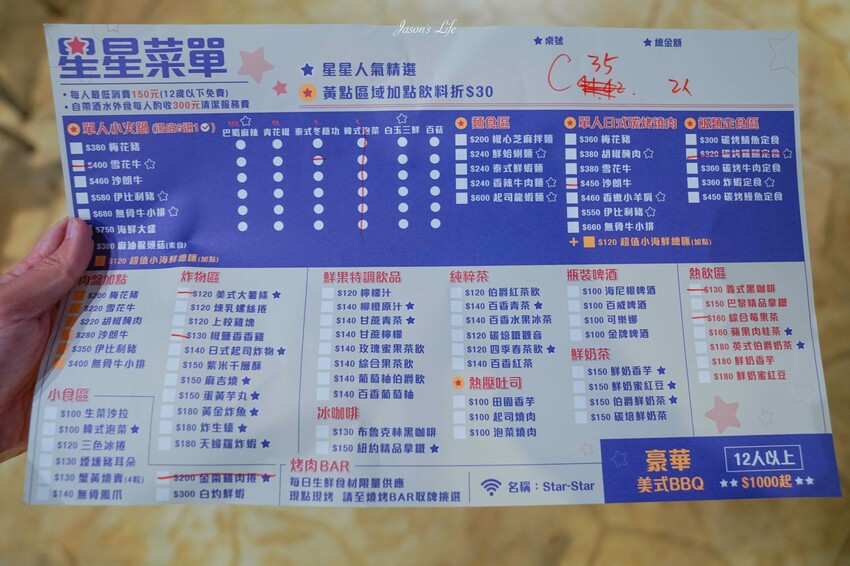 Jason's Life
星星菜單
・每人最低消費150元(12歲以下免費)
・自帶酒水外食每人酌收300元清潔服務費
★ 星星人氣精選
黃點區域加點飲料折$30
★桌號
★總金額
C 35
2人
單人小火鍋
巴蜀麻辣 青花椒 泰式冬蔭功 韓式泡菜 白玉三鮮 百菇
$380 梅花豬
$400 雪花牛☆
$460 沙朗牛
$580 伊比利豬☆
$680 無骨牛小排☆
$750 海鮮大盛
$380 麻油猴頭菇(素食)
$120 超值小海鮮總匯(加點)
麵食區
$200 椒心芝麻拌麵
$240 鮮蛤蜊麵☆
$240 泰式鮮蝦麵
$240 香辣牛肉麵☆
$600 起司龍蝦麵☆
單人日式碳烤燒肉
$360 梅花豬
$380 胡椒醃肉☆
$380 雪花牛
$450 沙朗牛
$460 香嫩小羊肩☆
$550 伊比利豬☆
$660 無骨牛小排
+ $120 超值小海鮮總匯(加點)
飯類定食區
$300 碳烤鯖魚定食
$320
$360 碳烤牛肉定食
$360 炸蝦定食☆
$450 碳烤鰻魚定食
肉盤加點
$200 梅花豬
$220 雪花牛
$220 胡椒醃肉
$280 沙朗牛
$350 伊比利豬
$400 無骨牛小排
小食區
$100 生菜沙拉
$100 韓式泡菜★
$120 三色冰捲
$130 煙燻豬耳朵
$130 蟹黃燒賣(4粒)
$140 無骨鳳爪
炸物區
$120 美式大薯條★
$120 煉乳螺絲捲
$120 上校雞塊
$130 椒鹽香香雞
$140 日式起司炸物★
$150 紫米千層酥
$150 麻吉燒★
$150 蛋黃芋丸★
$180 黃金炸魚★
$180 炸生蠔★
$180 天婦羅炸蝦★
$200 金棗雞肉捲★
$300 白灼鮮蝦
鮮果特調飲品
$120 檸檬汁
$140 柳橙原汁★
$140 甘蔗青茶★
$140 甘蔗檸檬
$140 玫瑰蜜果茶飲
$140 綜合果茶飲
$140 葡萄柚伯爵飲
$140 百香葡萄柚
冰咖啡
$130 布魯克林黑咖啡
$150 紐約精品拿鐵★
純粹茶
$120 伯爵紅茶飲
$140 百香青茶★
$140 百香水果冰茶
$120 碳焙鐵觀音
$120 四季春茶飲★
$140 百香紅茶
熱壓吐司
$100 田園香芋
$100 起司燒肉
$100 泡菜燒肉
瓶裝啤酒
$100 海尼根啤酒
$100 百威啤酒
$100 可樂娜
$100 金牌啤酒
鮮奶茶
$150 鮮奶香芋★
$150 鮮奶蜜紅豆★
$150 伯爵鮮奶茶★
$150 碳焙鮮奶茶
熱飲區
$130 義式黑咖啡
$150 巴黎精品拿鐵
$160 綜合莓果茶
$160 蘋果肉桂茶★
$180 英式伯爵奶茶★
$180 鮮奶香芋
$180 鮮奶蜜紅豆
烤肉BAR
每日生鮮食材限量供應
現點現烤 請至燒烤BAR取牌挑選
名稱：Star-Star
豪華
美式BBQ
12人以上
★★$1000起★★